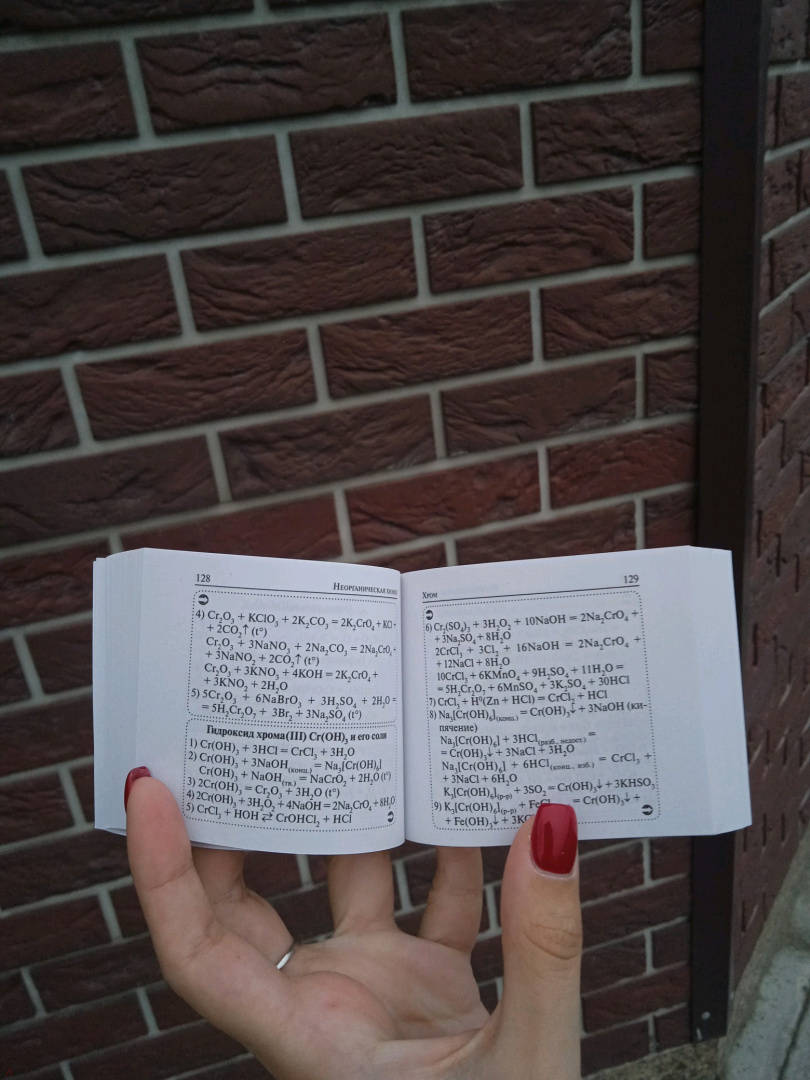 128
НЕОРГАНИЧЕСКАЯ
4) Cr₂O₃ + KClO₃ + 2K₂CO₃ = 2K₂CrO₄ + KCl +
+ 2CO₂↑ (t°)
Cr₂O₃ + 3NaNO₃ + 2Na₂CO₃ = 2Na₂CrO₄ +
+ 3NaNO₂ + 2CO₂↑ (t°)
Cr₂O₃ + 3KNO₃ + 4KOH = 2K₂CrO₄ +
+ 3KNO₂ + 2H₂O
5) 5Cr₂O₃ + 6NaBrO₃ + 3H₂SO₄ + 2H₂O =
= 5H₂Cr₂O₇ + 3Br₂ + 3Na₂SO₄ (t°)
Гидроксид хрома(III) Cr(OH)₃ и его соли
1) Cr(OH)₃ + 3HCl = CrCl₃ + 3H₂O
2) Cr(OH)₃ + 3NaOH(конц.) = Na₃[Cr(OH)₆]
Cr(OH)₃ + NaOH(тв.) = NaCrO₂ + 2H₂O (t°)
3) 2Cr(OH)₃ = Cr₂O₃ + 3H₂O (t°)
4) 2Cr(OH)₃ + 3H₂O₂ + 4NaOH = 2Na₂CrO₄ + 8H₂O
5) CrCl₃ + HOH ⇄ CrOHCl₂ + HCl
ХРОМ
129
6) Cr₂(SO₄)₃ + 3H₂O₂ + 10NaOH = 2Na₂CrO₄ +
+ 3Na₂SO₄ + 8H₂O
2CrCl₃ + 3Cl₂ + 16NaOH = 2Na₂CrO₄ +
+ 12NaCl + 8H₂O
10CrCl₃ + 6KMnO₄ + 9H₂SO₄ + 11H₂O =
= 5H₂Cr₂O₇ + 6MnSO₄ + 3K₂SO₄ + 30HCl
7) CrCl₃ + H⁰(Zn + HCl) = CrCl₂ + HCl
8) Na₃[Cr(OH)₆](конц.) = Cr(OH)₃↓ + 3NaOH (ки-
пячение)
Na₃[Cr(OH)₆] + 3HCl(разб., недост.) =
= Cr(OH)₃↓ + 3NaCl + 3H₂O
Na₃[Cr(OH)₆] + 6HCl(конц., изб.) = CrCl₃ +
+ 3NaCl + 6H₂O
K₃[Cr(OH)₆](р-р) + 3SO₂ = Cr(OH)₃↓ + 3KHSO₃
9) K₃[Cr(OH)₆](р-р) + = Cr(OH)₃↓ +
+ Fe(OH)₃↓ +